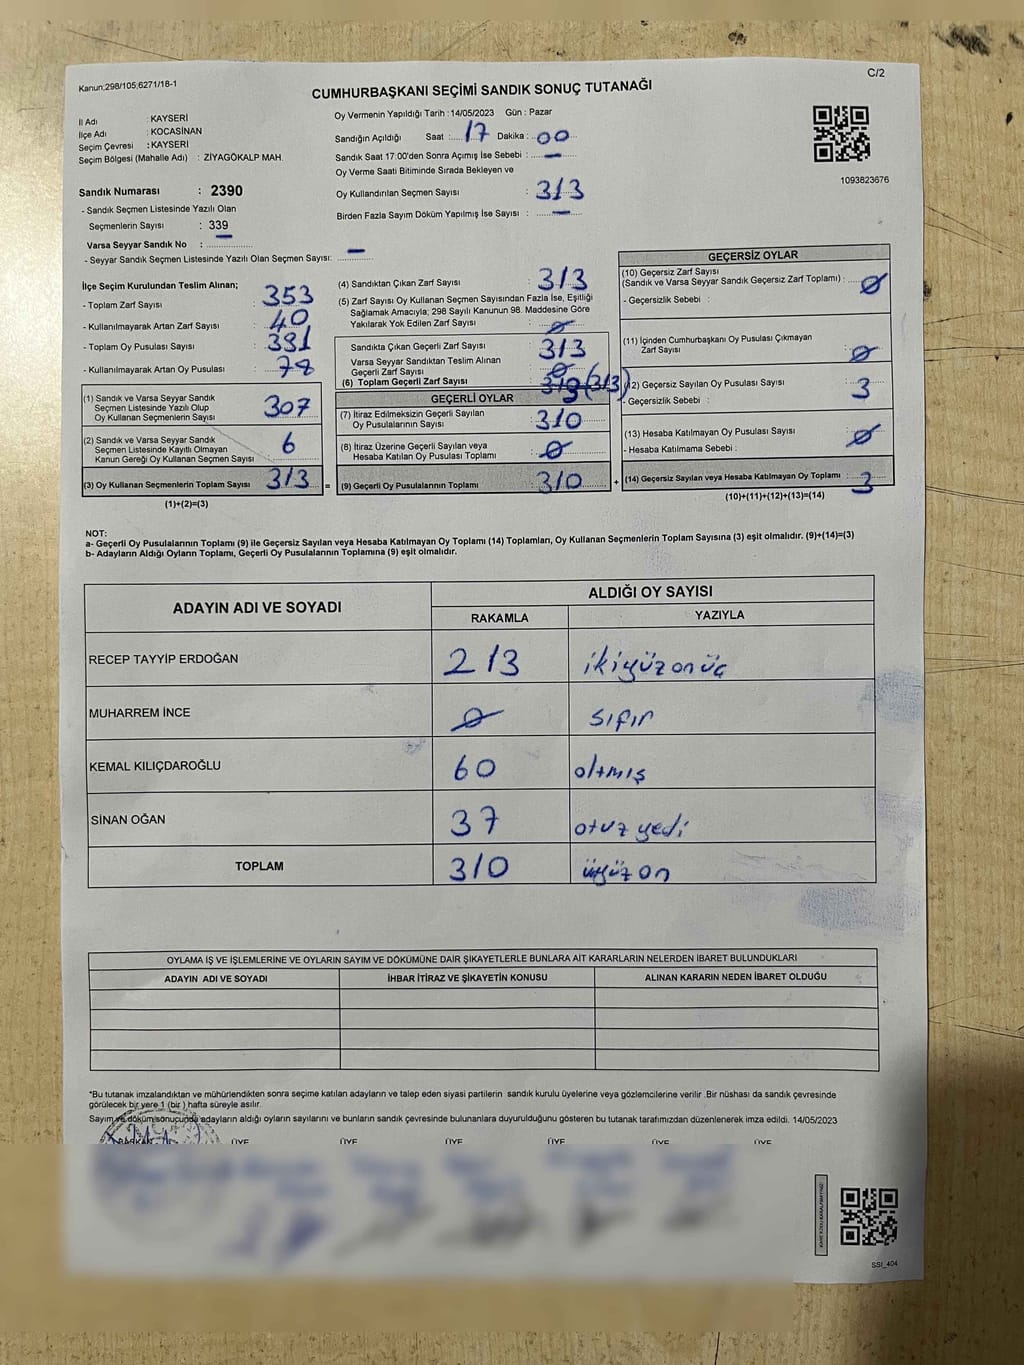 Kanun:298/105;6271/18-1
C/2
CUMHURBAŞKANI SEÇİMİ SANDIK SONUÇ TUTANAĞI
İl Adı : KAYSERİ
İlçe Adı : KOCASİNAN
Seçim Çevresi : KAYSERİ
Seçim Bölgesi (Mahalle Adı) : ZİYAGÖKALP MAH.
Sandık Numarası : 2390
- Sandık Seçmen Listesinde Yazılı Olan
Seçmenlerin Sayısı : 339
Varsa Seyyar Sandık No : —
- Seyyar Sandık Seçmen Listesinde Yazılı Olan Seçmen Sayısı: —
Oy Vermenin Yapıldığı Tarih : 14/05/2023 Gün : Pazar
Sandığın Açıldığı Saat : 17 Dakika : 00
Sandık Saat 17:00'den Sonra Açımış İse Sebebi : —
Oy Verme Saati Bitiminde Sırada Bekleyen ve
Oy Kullandırılan Seçmen Sayısı : 313
Birden Fazla Sayım Döküm Yapılmış İse Sayısı : —
1093823676
İlçe Seçim Kurulundan Teslim Alınan;
- Toplam Zarf Sayısı : 353
- Kullanılmayarak Artan Zarf Sayısı : 40
- Toplam Oy Pusulası Sayısı : 391
- Kullanılmayarak Artan Oy Pusulası : 78
(1) Sandık ve Varsa Seyyar Sandık
Seçmen Listesinde Yazılı Olup
Oy Kullanan Seçmenlerin Sayısı 307
(2) Sandık ve Varsa Seyyar Sandık
Seçmen Listesinde Kayıtlı Olmayan
Kanun Gereği Oy Kullanan Seçmen Sayısı 6
(3) Oy Kullanan Seçmenlerin Toplam Sayısı 313 =
(1)+(2)=(3)
(4) Sandıktan Çıkan Zarf Sayısı : 313
(5) Zarf Sayısı Oy Kullanan Seçmen Sayısından Fazla İse, Eşitliği
Sağlamak Amacıyla; 298 Sayılı Kanunun 98. Maddesine Göre
Yakılarak Yok Edilen Zarf Sayısı : 0
Sandıkta Çıkan Geçerli Zarf Sayısı : 313
Varsa Seyyar Sandıktan Teslim Alınan
Geçerli Zarf Sayısı : 0
(6) Toplam Geçerli Zarf Sayısı : 310 (313)
GEÇERLİ OYLAR
(7) İtiraz Edilmeksizin Geçerli Sayılan
Oy Pusulalarının Sayısı : 310
(8) İtiraz Üzerine Geçerli Sayılan veya
Hesaba Katılan Oy Pusulası Toplamı : 0
(9) Geçerli Oy Pusulalarının Toplamı : 310 +
GEÇERSİZ OYLAR
(10) Geçersiz Zarf Sayısı
(Sandık ve Varsa Seyyar Sandık Geçersiz Zarf Toplamı) : 0
- Geçersizlik Sebebi :
(11) İçinden Cumhurbaşkanı Oy Pusulası Çıkmayan
Zarf Sayısı : 0
(12) Geçersiz Sayılan Oy Pusulası Sayısı 3
- Geçersizlik Sebebi :
(13) Hesaba Katılmayan Oy Pusulası Sayısı 0
- Hesaba Katılmama Sebebi :
(14) Geçersiz Sayılan veya Hesaba Katılmayan Oy Toplamı : 3
(10)+(11)+(12)+(13)=(14)
NOT:
a- Geçerli Oy Pusulalarının Toplamı (9) ile Geçersiz Sayılan veya Hesaba Katılmayan Oy Toplamı (14) Toplamları, Oy Kullanan Seçmenlerin Toplam Sayısına (3) eşit olmalıdır. (9)+(14)=(3)
b- Adayların Aldığı Oyların Toplamı, Geçerli Oy Pusulalarının Toplamına (9) eşit olmalıdır.
ADAYIN ADI VE SOYADI ALDIĞI OY SAYISI
RAKAMLA YAZIYLA
RECEP TAYYİP ERDOĞAN 213 ikiyüzonüç
MUHARREM İNCE 0 sıfır
KEMAL KILIÇDAROĞLU 60 altmış
SİNAN OĞAN 37 otuz yedi
TOPLAM 310 üçyüz on
OYLAMA İŞ VE İŞLEMLERİNE VE OYLARIN SAYIM VE DÖKÜMÜNE DAİR ŞİKAYETLERLE BUNLARA AİT KARARLARIN NELERDEN İBARET BULUNDUKLARI
ADAYIN ADI VE SOYADI İHBAR İTİRAZ VE ŞİKAYETİN KONUSU ALINAN KARARIN NEDEN İBARET OLDUĞU
*Bu tutanak imzalandıktan ve mühürlendikten sonra seçime katılan adayların ve talep eden siyasi partilerin sandık kurulu üyelerine veya gözlemcilerine verilir .Bir nüshası da sandık çevresinde
görülecek bir yere 1 (bir ) hafta süreyle asılır.
Sayım ve döküm sonucunda adayların aldığı oyların sayılarını ve bunların sandık çevresinde bulunanlara duyurulduğunu gösteren bu tutanak tarafımızdan düzenlenerek imza edildi. 14/05/2023
ÜYE ÜYE ÜYE ÜYE ÜYE ÜYE
SSI_404